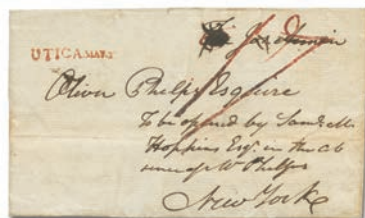 UTICA MAR
Oliver Phelps Esquire
To be opened by Saml. M.
Hopkins Esqr. in the ab
sence of Mr Phelps
New York